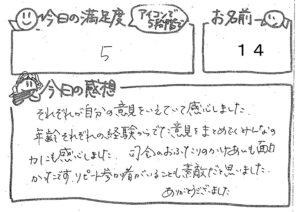 今日の満足度
アイコンで5段階で
お名前
5
14
今日の感想
それぞれが自分の意見をいえていて感心しました。
年齢それぞれの経験からでた意見をまとめていくみんなの
力にも感心しました。司会のおふたりのかけあいも面白
かったです。リピート参加者がいることも素敵だと思いました。
ありがとうございました